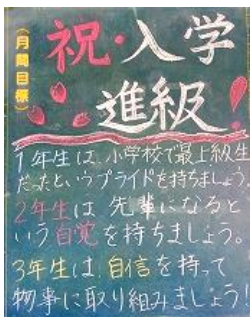 （月間目標）
祝・入学
進級！
1年生は、小学校で最上級生
だったというプライドを持ちましょう。
2年生は 先輩になると
いう自覚を持ちましょう。
3年生は、自信を持って
物事に取り組みましょう！